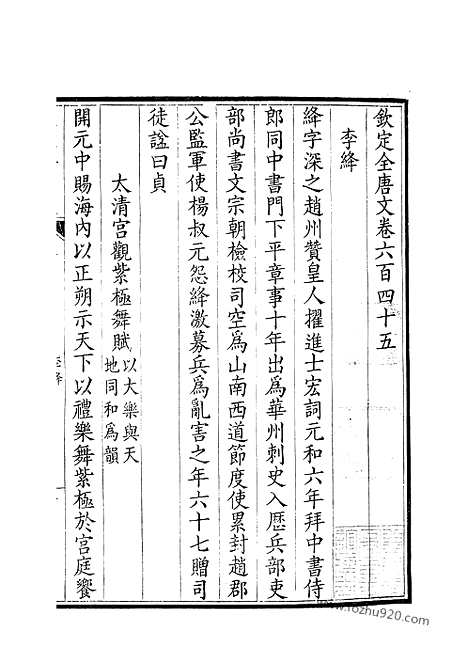 欽定全唐文卷六百四十五
李絳
絳字深之趙州贊皇人擢進士宏詞元和六年拜中書侍
郎同中書門下平章事十年出爲華州刺史入歷兵部吏
部尚書文宗朝檢校司空爲山南西道節度使累封趙郡
公監軍使楊叔元怨絳激募兵爲亂害之年六十七贈司
徒諡曰貞
太清宮觀紫極舞賦以大樂與天
地同和爲韻
開元中賜海內以正朔示天下以禮樂舞紫極於宮庭饗
www.fozhu920.com